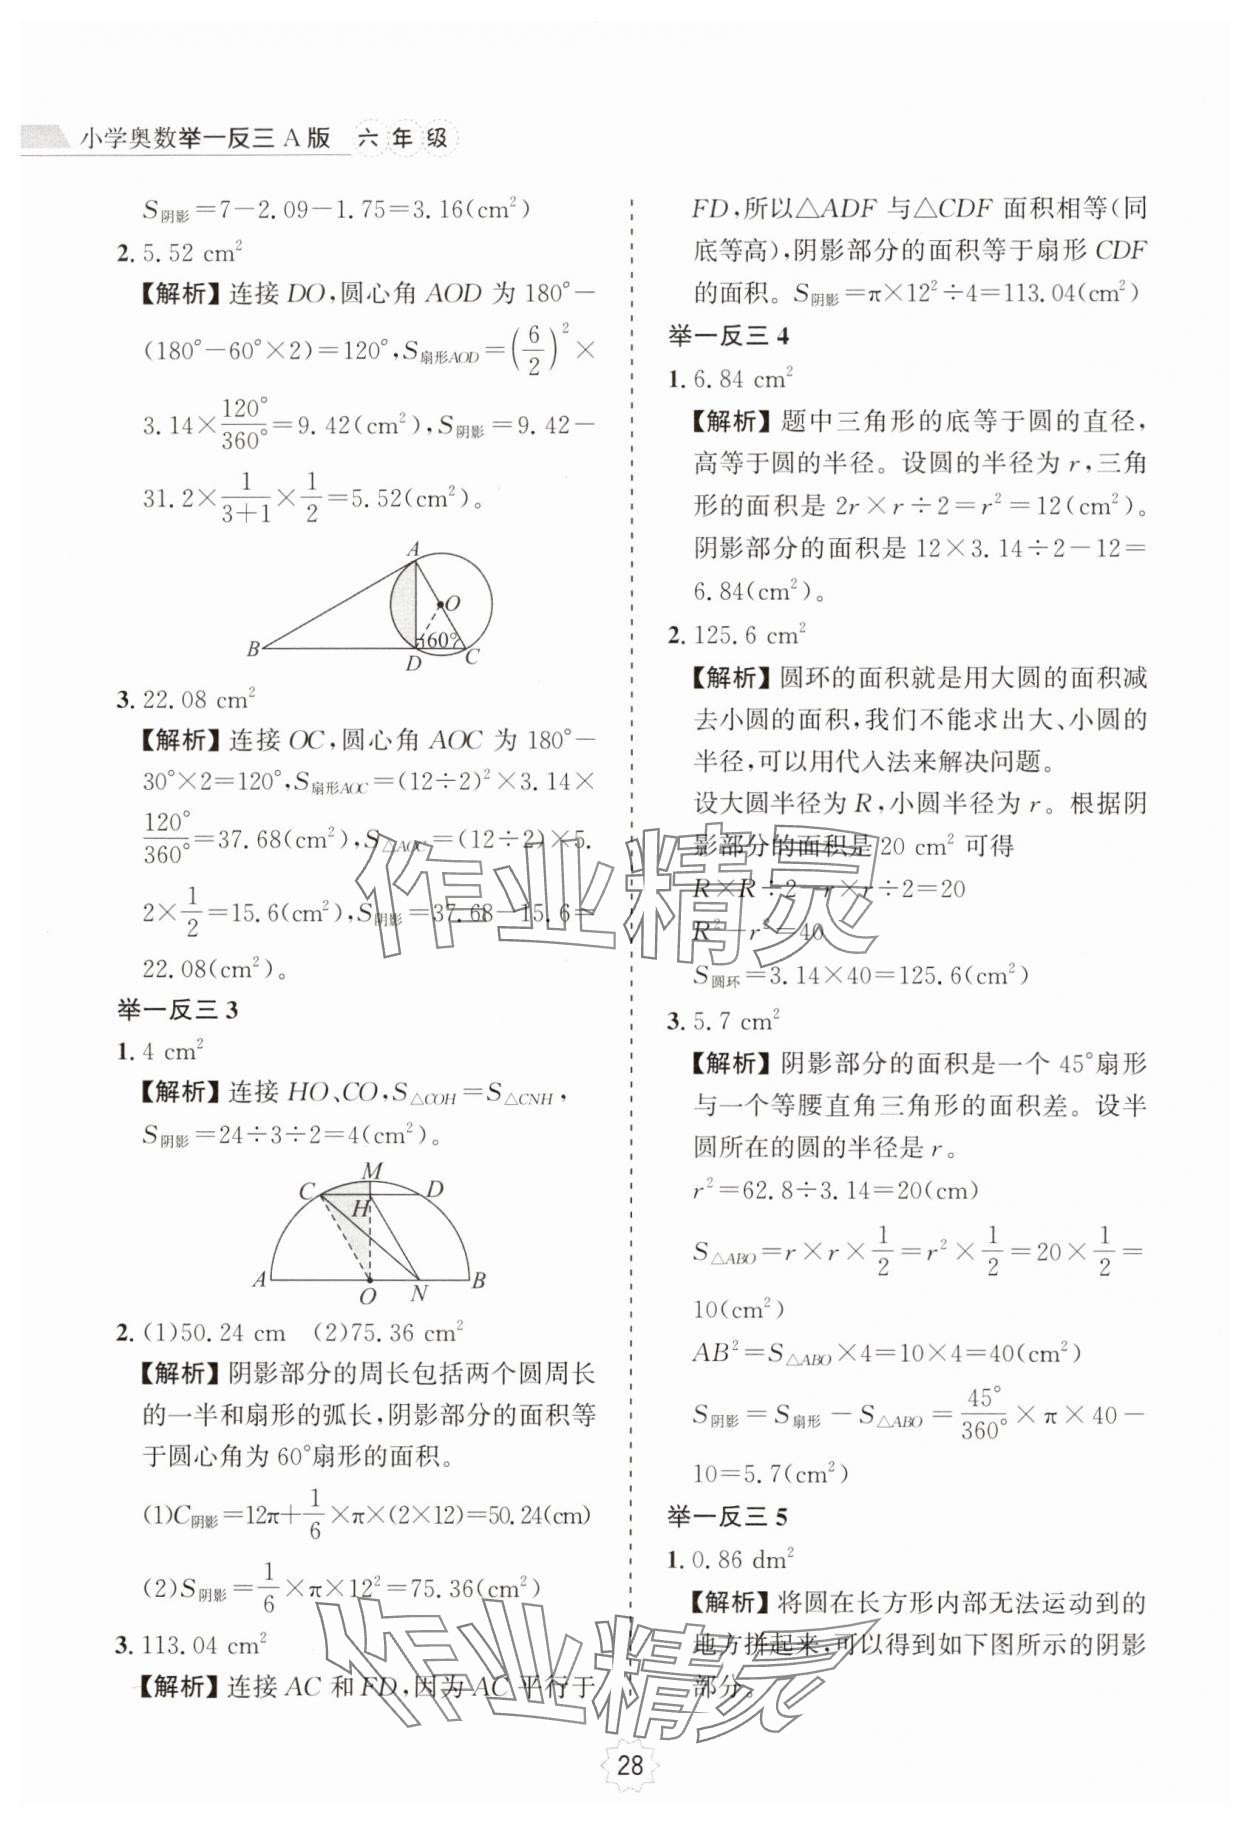 小学奥数举一反三A版 六年级
S阴影=7-2.09-1.75=3.16(cm²)
2. 5.52 cm²
【解析】连接DO,圆心角AOD为180°-
(180°-60°×2)=120°,S扇形AOD=(6/2)²×
3.14×120°/360°=9.42(cm²),S阴影=9.42-
31.2×1/(3+1)×1/2=5.52(cm²)。
A
O
60°
B
D
C
3. 22.08 cm²
【解析】连接OC,圆心角AOC为180°-
30°×2=120°,S扇形AOC=(12÷2)²×3.14×
120°/360°=37.68(cm²),S△AOC=(12÷2)×5.
2×1/2=15.6(cm²),S阴影=37.68-15.6=
22.08(cm²)。
举一反三3
1. 4 cm²
【解析】连接HO、CO,S△COH=S△CNH,
S阴影=24÷3÷2=4(cm²)。
M
C
D
H
A
O
N
B
2. (1)50.24 cm (2)75.36 cm²
【解析】阴影部分的周长包括两个圆周长
的一半和扇形的弧长,阴影部分的面积等
于圆心角为60°扇形的面积。
(1)C阴影=12π+1/6×π×(2×12)=50.24(cm)
(2)S阴影=1/6×π×12²=75.36(cm²)
3. 113.04 cm²
【解析】连接AC和FD,因为AC平行于
FD,所以△ADF与△CDF面积相等(同
底等高),阴影部分的面积等于扇形CDF
的面积。S阴影=π×12²÷4=113.04(cm²)
举一反三4
1. 6.84 cm²
【解析】题中三角形的底等于圆的直径,
高等于圆的半径。设圆的半径为r,三角
形的面积是2r×r÷2=r²=12(cm²)。
阴影部分的面积是12×3.14÷2-12=
6.84(cm²)。
2. 125.6 cm²
【解析】圆环的面积就是用大圆的面积减
去小圆的面积,我们不能求出大、小圆的
半径,可以用代入法来解决问题。
设大圆半径为R,小圆半径为r。根据阴
影部分的面积是20 cm²可得
R×R÷2-r×r÷2=20
R²-r²=40
S圆环=3.14×40=125.6(cm²)
3. 5.7 cm²
【解析】阴影部分的面积是一个45°扇形
与一个等腰直角三角形的面积差。设半
圆所在的圆的半径是r。
r²=62.8÷3.14=20(cm)
S△ABO=r×r×1/2=r²×1/2=20×1/2=
10(cm²)
AB²=S△ABO×4=10×4=40(cm²)
S阴影=S扇形-S△ABO=45°/360°×π×40-
10=5.7(cm²)
举一反三5
1. 0.86 dm²
【解析】将圆在长方形内部无法运动到的
地方拼起来,可以得到如下图所示的阴影
部分。
作业精灵
作业精灵
28